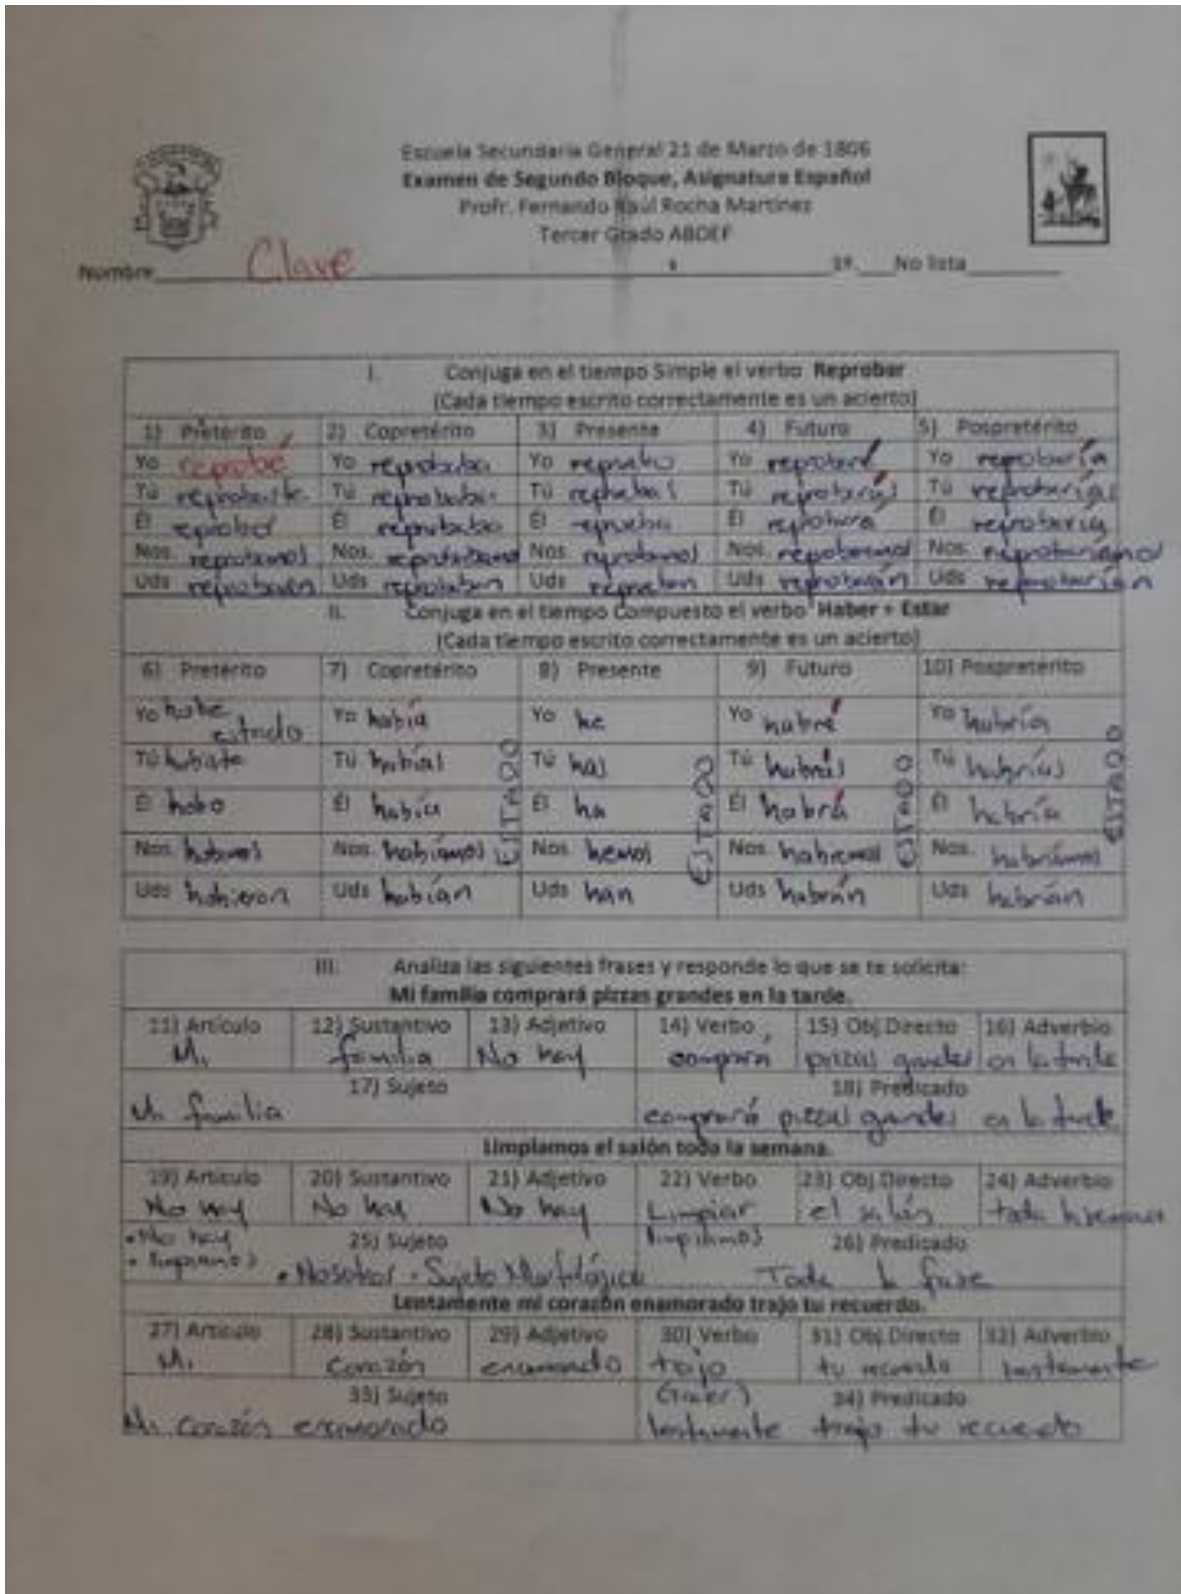 Escuela Secundaria General 21 de Marzo de 1806
Examen de Segundo Bloque, Asignatura Español
Profr. Fernando Raúl Rocha Martínez
Tercer Grado ABDEF
Nombre Clave 3º. No lista
I. Conjuga en el tiempo Simple el verbo Reprobar
(Cada tiempo escrito correctamente es un acierto)
1) Pretérito 2) Copretérito 3) Presente 4) Futuro 5) Pospretérito
Yo reprobé Yo reprobaba Yo repruebo Yo reprobaré Yo reprobaría
Tú reprobaste Tú reprobabas Tú repruebas Tú reprobarás Tú reprobarías
Él reprobó Él reprobaba Él reprueba Él reprobará Él reprobaría
Nos. reprobamos Nos. reprobabamos Nos. reprobamos Nos. reprobaremos Nos. reprobaríamos
Uds reprobaron Uds reprobaban Uds reprueban Uds reprobarán Uds reprobarían
II. Conjuga en el tiempo Compuesto el verbo Haber + Estar
(Cada tiempo escrito correctamente es un acierto)
6) Pretérito 7) Copretérito 8) Presente 9) Futuro 10) Pospretérito
Yo hube estado Yo había Yo he Yo habré Yo habría
Tú hubiste Tú habías Tú has Tú habrás Tú habrías
ESTADO ESTADO ESTADO ESTADO
Él hubo Él había Él ha Él habrá Él habría
Nos. hubimos Nos. habíamos Nos. hemos Nos. habremos Nos. habríamos
Uds hubieron Uds habían Uds han Uds habrán Uds habrían
III. Analiza las siguientes frases y responde lo que se te solicita:
Mi familia comprará pizzas grandes en la tarde.
11) Artículo 12) Sustantivo 13) Adjetivo 14) Verbo 15) Obj.Directo 16) Adverbio
Mi familia No hay comprará pizzas grandes en la tarde
17) Sujeto 18) Predicado
Mi familia comprará pizzas grandes en la tarde
Limpiamos el salón toda la semana.
19) Artículo 20) Sustantivo 21) Adjetivo 22) Verbo 23) Obj.Directo 24) Adverbio
No hay No hay No hay Limpiar el salón toda la semana
• No hay 25) Sujeto limpiamos 26) Predicado
• limpiamos • Nosotros - Sujeto Morfológico Toda la frase
Lentamente mi corazón enamorado trajo tu recuerdo.
27) Artículo 28) Sustantivo 29) Adjetivo 30) Verbo 31) Obj.Directo 32) Adverbio
Mi Corazón enamorado trajo tu recuerdo lentamente
33) Sujeto (traer) 34) Predicado
Mi corazón enamorado lentamente trajo tu recuerdo